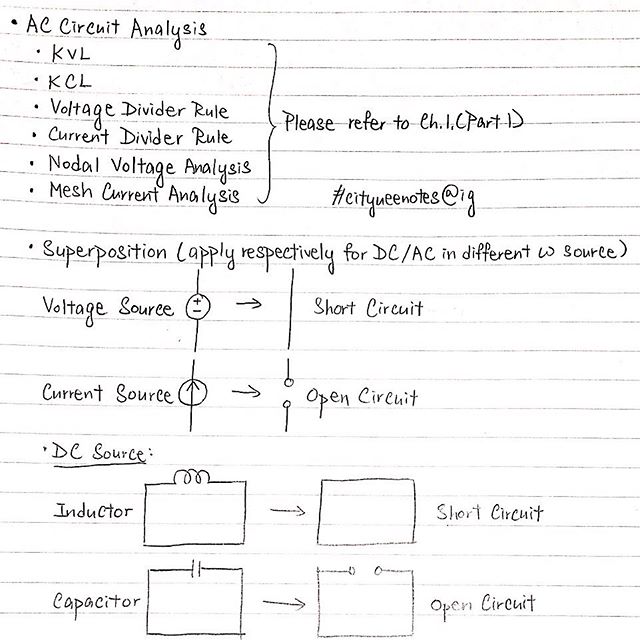 • AC Circuit Analysis
• KVL
• KCL
• Voltage Divider Rule
• Current Divider Rule
• Nodal Voltage Analysis
• Mesh Current Analysis
Please refer to Ch.1.(Part 1)
#cityueenotes@ig
• Superposition (apply respectively for DC/AC in different ω source)
Voltage Source → Short Circuit
Current Source → Open Circuit
• DC Source:
Inductor → Short Circuit
Capacitor → Open Circuit